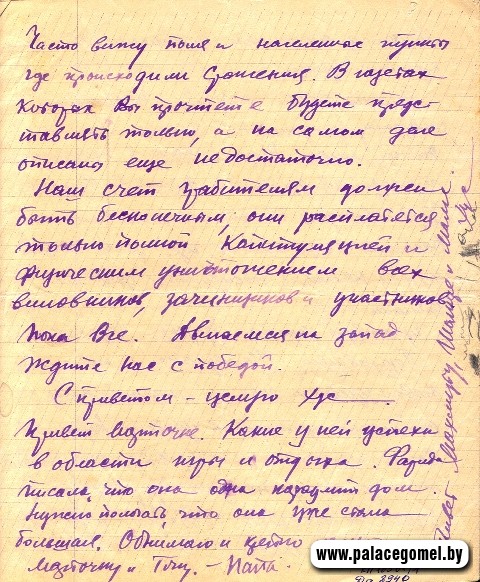 Часто вижу поля и населенные пункты
где происходили сражения. В газетах
которых Вы прочтете будете предс-
тавлять только, а на самом деле
описаны еще недостаточно.
Наш счет грабителям должен
быть бесконечным, они расплатятся
только полной капитуляцией и
физическим уничтожением всех
виновников, зачинщиков и участников
Пока Все. Двигаемся на запад.
Ждите нас с победой.
С приветом – целую
Привет Марточке. Какие у ней успехи
в области игры и отдыха. Фарида
писала, что она одна находит дом.
Нужно полагать, что она уже стала
большая. Обнимаю и крепко
Марточку и – Папа.
Привет и Маме.
www.palacegomel.by